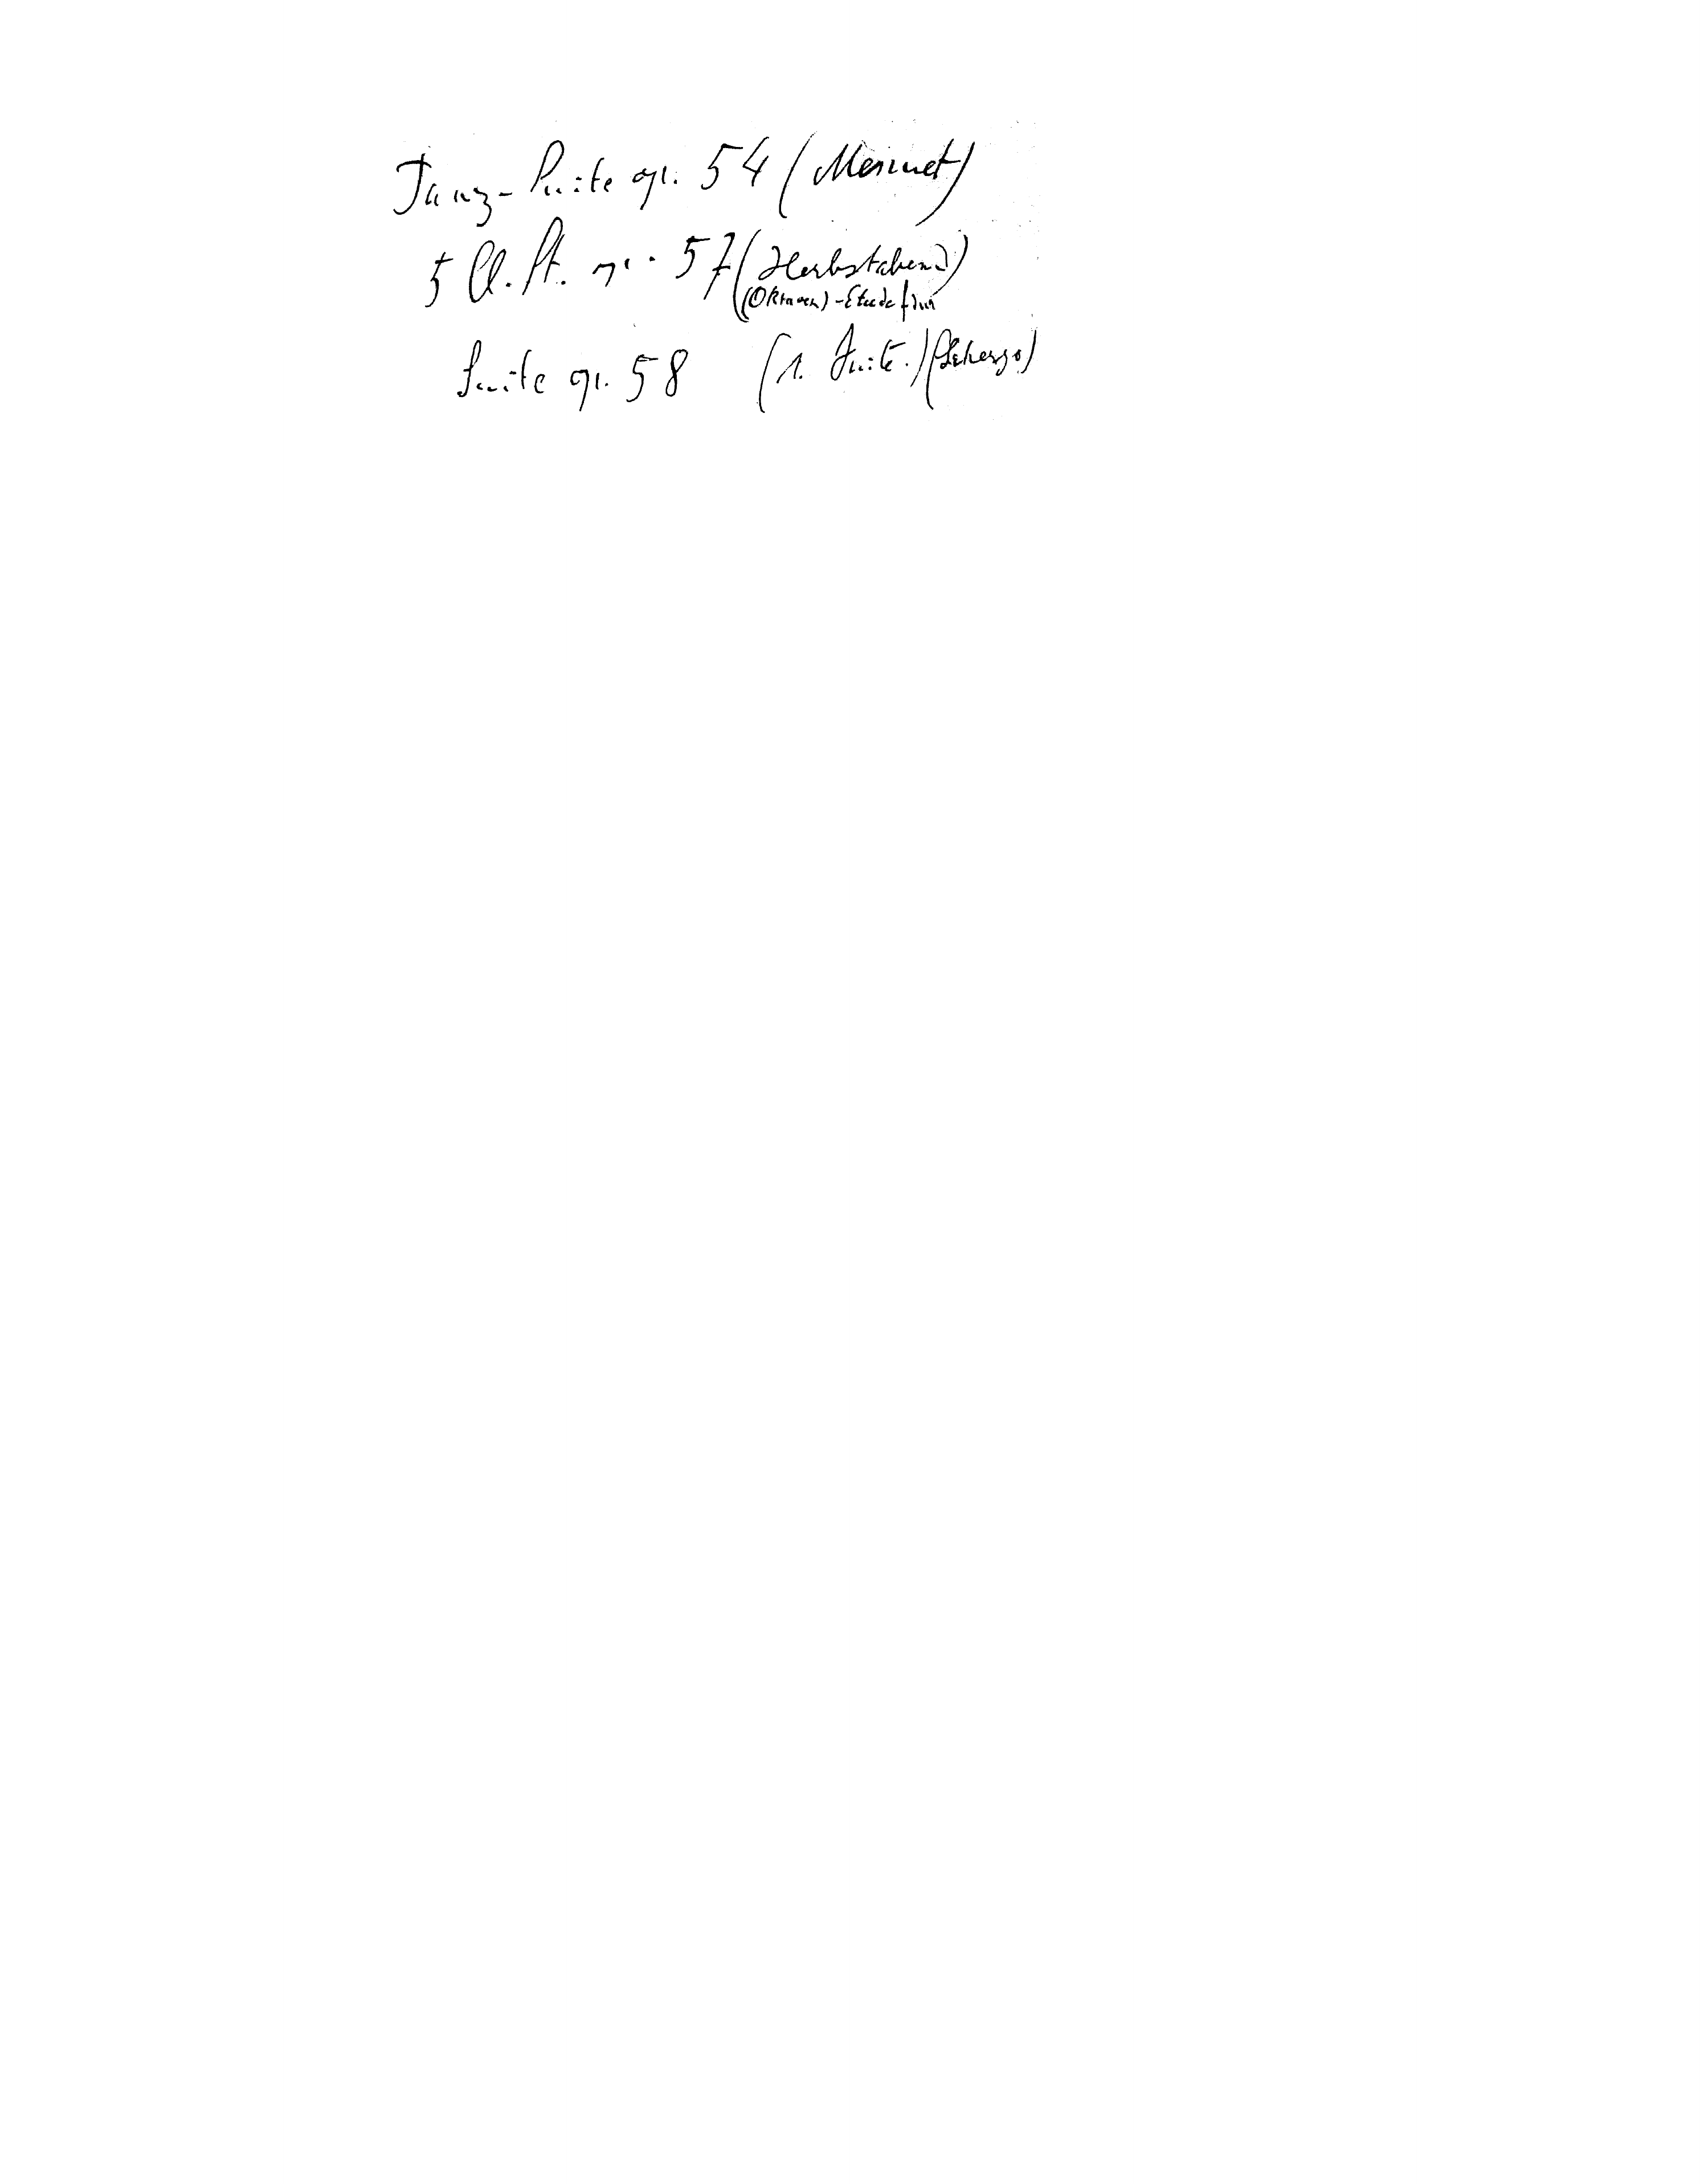 Tanz-Suite op. 54 (Menuet)
5 Cl. St. op. 57 (Herbstabend)
(Oktaven)-Etude
Suite op. 58 (1. Suite.) (Scherzo)